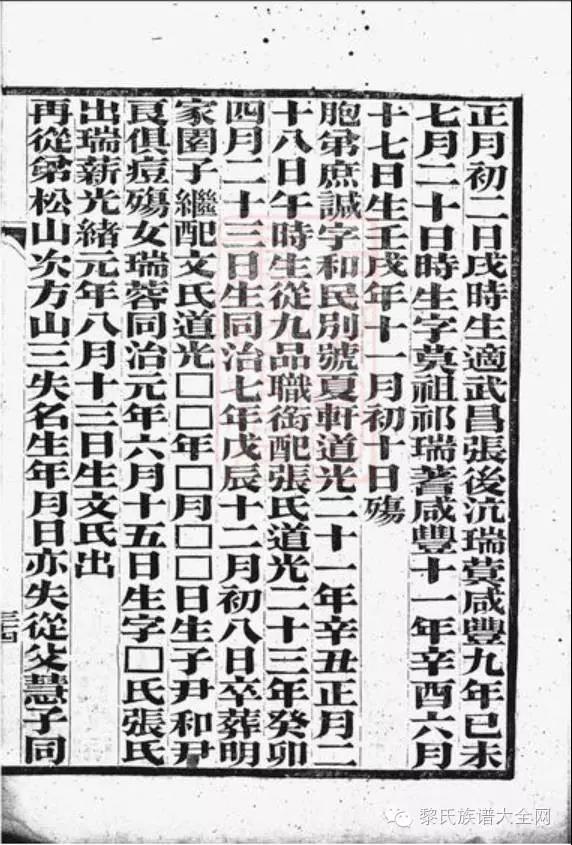 正月初二日戌時生適武昌張後沆瑞蓂咸豐九年己未
七月二十日時生字蓂祖祁瑞蓍咸豐十一年辛酉六月
十七日生壬戌年十一月初十日殤
胞弟庶諴字和民別號夏軒道光二十一年辛丑正月二
十八日午時生從九品職銜配張氏道光二十三年癸卯
四月二十三日生同治七年戊辰十二月初八日卒葬明
家園子繼配文氏道光□□年□月□□日生子尹和尹
良俱痘殤女瑞蓉同治元年六月十五日生字□氏張氏
出瑞薪光緒元年八月十三日生文氏出
再從弟松山次方山三失名生年月日亦失從父慧子同
三四
黎氏族谱大全网